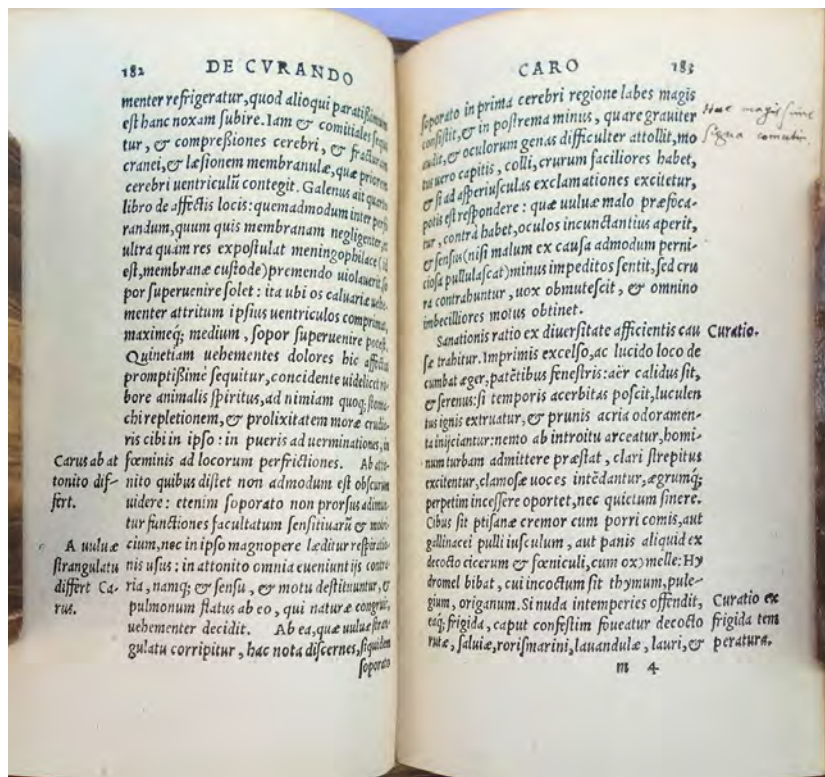 182 DE CVRANDO
menter refrigeratur, quod alioqui paratißimum
est hanc noxam subire. Iam & comitiales sequi
tur, & compreßiones cerebri, & fracturam
cranei, & læsionem membranulæ, quæ priorem
cerebri uentriculũ contegit. Galenus ait quarto
libro de affectis locis: quemadmodum inter perfo
randum, quum quis membranam negligenter, ac
ultra quam res expostulat meningophilace (id
est, membranæ custode) premendo uiolauerit, so
por superuenire solet: ita ubi os caluariæ uehe-
menter attritum ipsius uentriculos comprimat,
maximeq́; medium, sopor superuenire potest.
Quinetiam uehementes dolores hic affectus
promptißimè sequitur, concidente uidelicet ro-
bore animalis spiritus, ad nimiam quoq; stoma-
chi repletionem, & prolixitatem moræ crudio-
ris cibi in ipso: in pueris ad uerminationes, in
Carus ab at
tonito dif-
fert.
fœminis ad locorum perfrictiones. Ab atto-
nito quibus distet non admodum est obscurum
uidere: etenim soporato non prorsus adimun
tur functiones facultatum sensitiuarũ &
A uuluæ
strangulatu
differt Ca-
rus.
cium, nec in ipso magnopere læditur respiratio-
nis usus: in attonito omnia eueniunt ijs contra-
ria, namq; & sensu, & motu destituuntur, &
pulmonum flatus ab eo, qui naturæ congruit,
uehementer decidit. Ab ea, quæ uuluæ stran-
gulatu corripitur, hac nota discernes, siquidem
soporato
CARO 183
soporato in prima cerebri regione labes magis
consistit, & in postrema minus, quare grauiter
audit, & oculorum genas difficulter attollit, mo
tus uero capitis, colli, crurum faciliores habet,
& si ad asperiusculas exclamationes excitetur,
potis est respondere: quæ uuluæ malo præfoca-
tur, contrà habet, oculos incunctantius aperit,
& sensus (nisi malum ex causa admodum perni-
ciosa pullulascat) minus impeditos sentit, sed cru
ra contrahuntur, uox obmutescit, & omnino
imbecilliores motus obtinet.
Hac magis
signa
Sanationis ratio ex diuersitate afficientis cau
Curatio.
sæ trahitur. Imprimis excelso, ac lucido loco de
cumbat æger, patẽtibus fenestris: aër calidus sit,
& serenus: si temporis acerbitas poscit, luculen
tus ignis extruatur, & prunis acria odoramen-
ta inijciantur: nemo ab introitu arceatur, homi-
num turbam admittere præstat, clari strepitus
excitentur, clamosæ uoces intẽdantur, ægrumq́;
perpetim incessere oportet, nec quietum sinere.
Cibus sit ptisanæ cremor cum porri comis, aut
gallinacei pulli iusculum, aut panis aliquid ex
decocto cicerum & fœniculi, cum oxymelle: Hy
dromel bibat, cui incoctum sit thymum, pule-
gium, origanum. Si nuda intemperies offendit,
eaq́; frigida, caput confestim foueatur decocto
rutæ, saluiæ, rorismarini, lauandulæ, lauri, &
Curatio ex
frigida tem
peratura.
m 4